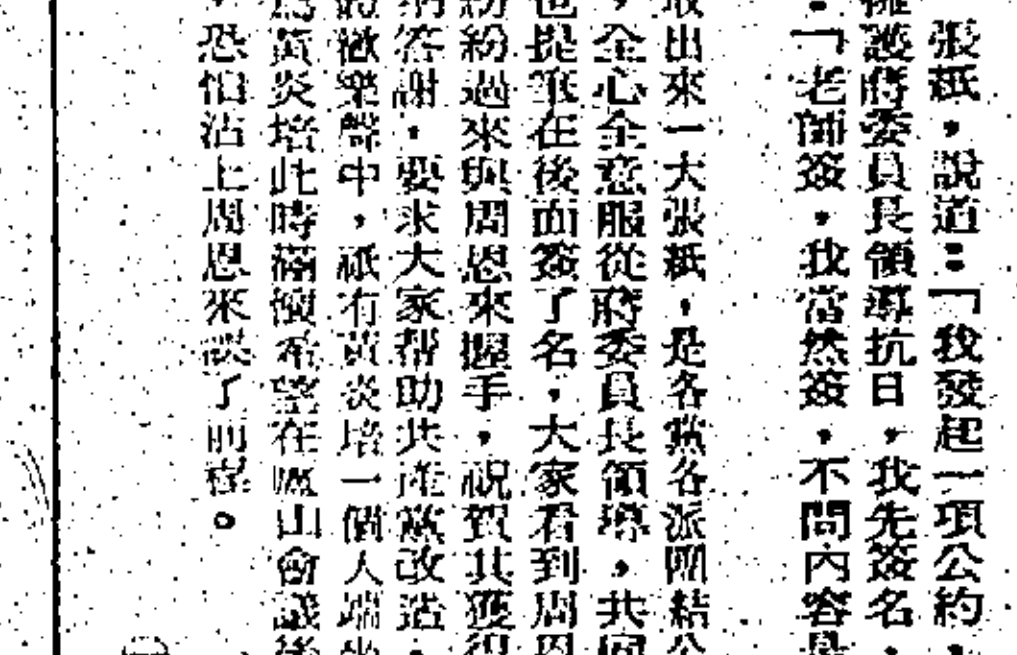 張紙，說道：「我發起一項公約，
擁護蔣委員長領導抗日，我先簽名，
：「老師簽，我當然簽，不問內容是
取出來一大張紙，是各黨各派團結公
，全心全意服從蔣委員長領導，共同
也提筆在後面簽了名，大家看到周恩
紛紛過來與周恩來握手，祝賀其獲得
答謝，要求大家幫助共產黨改造，
的歡樂聲中，祇有黃炎培一個人端坐
為黃炎培此時滿懷希望在廬山會議後
，恐怕沾上周恩來誤了前程。